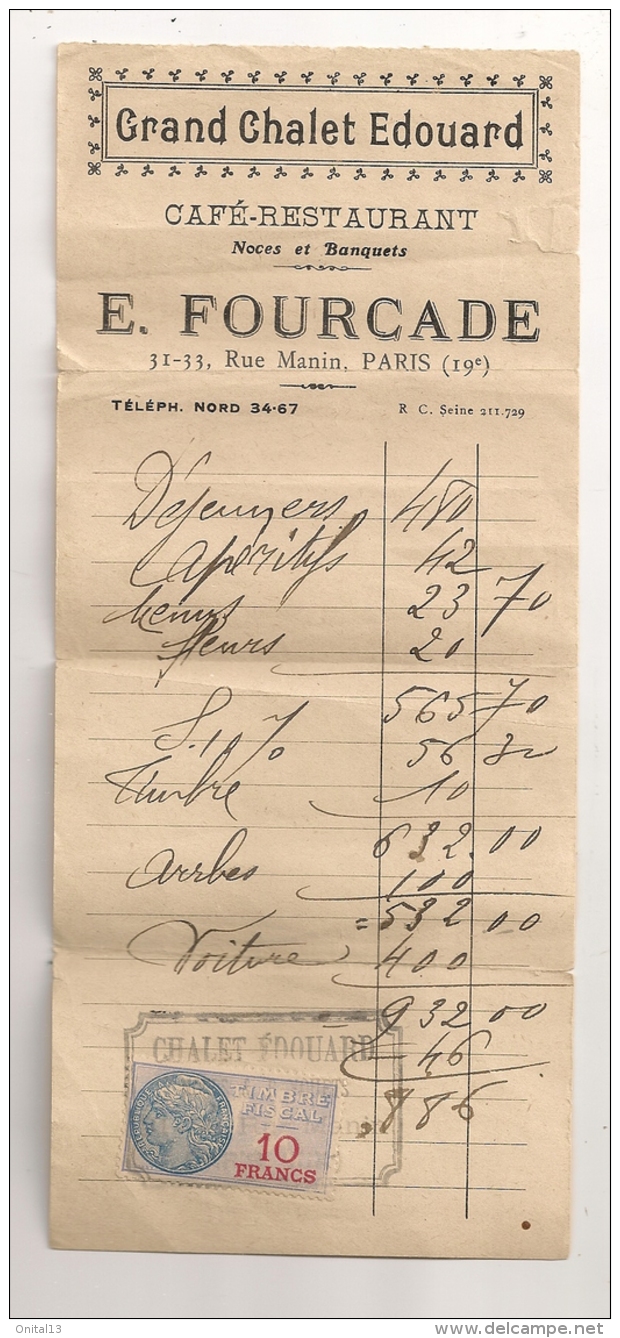 Grand Chalet Edouard
CAFÉ-RESTAURANT
Noces et Banquets
E. FOURCADE
31-33, Rue Manin, PARIS (19e)
TÉLÉPH. NORD 34-67 R C. Seine 211.729
Déjeuners 480
Apéritifs 42
Menus 23 70
fleurs 20
565 70
S. 10 % 56 30
Timbre 10
632.00
Arrhes 100
= 532 00
Voiture 400
= 932 00
- 46
886
CHALET ÉDOUARD
RÉPUBLIQUE FRANÇAISE
TIMBRE
FISCAL
10
FRANCS
Onital13
delcampe.net